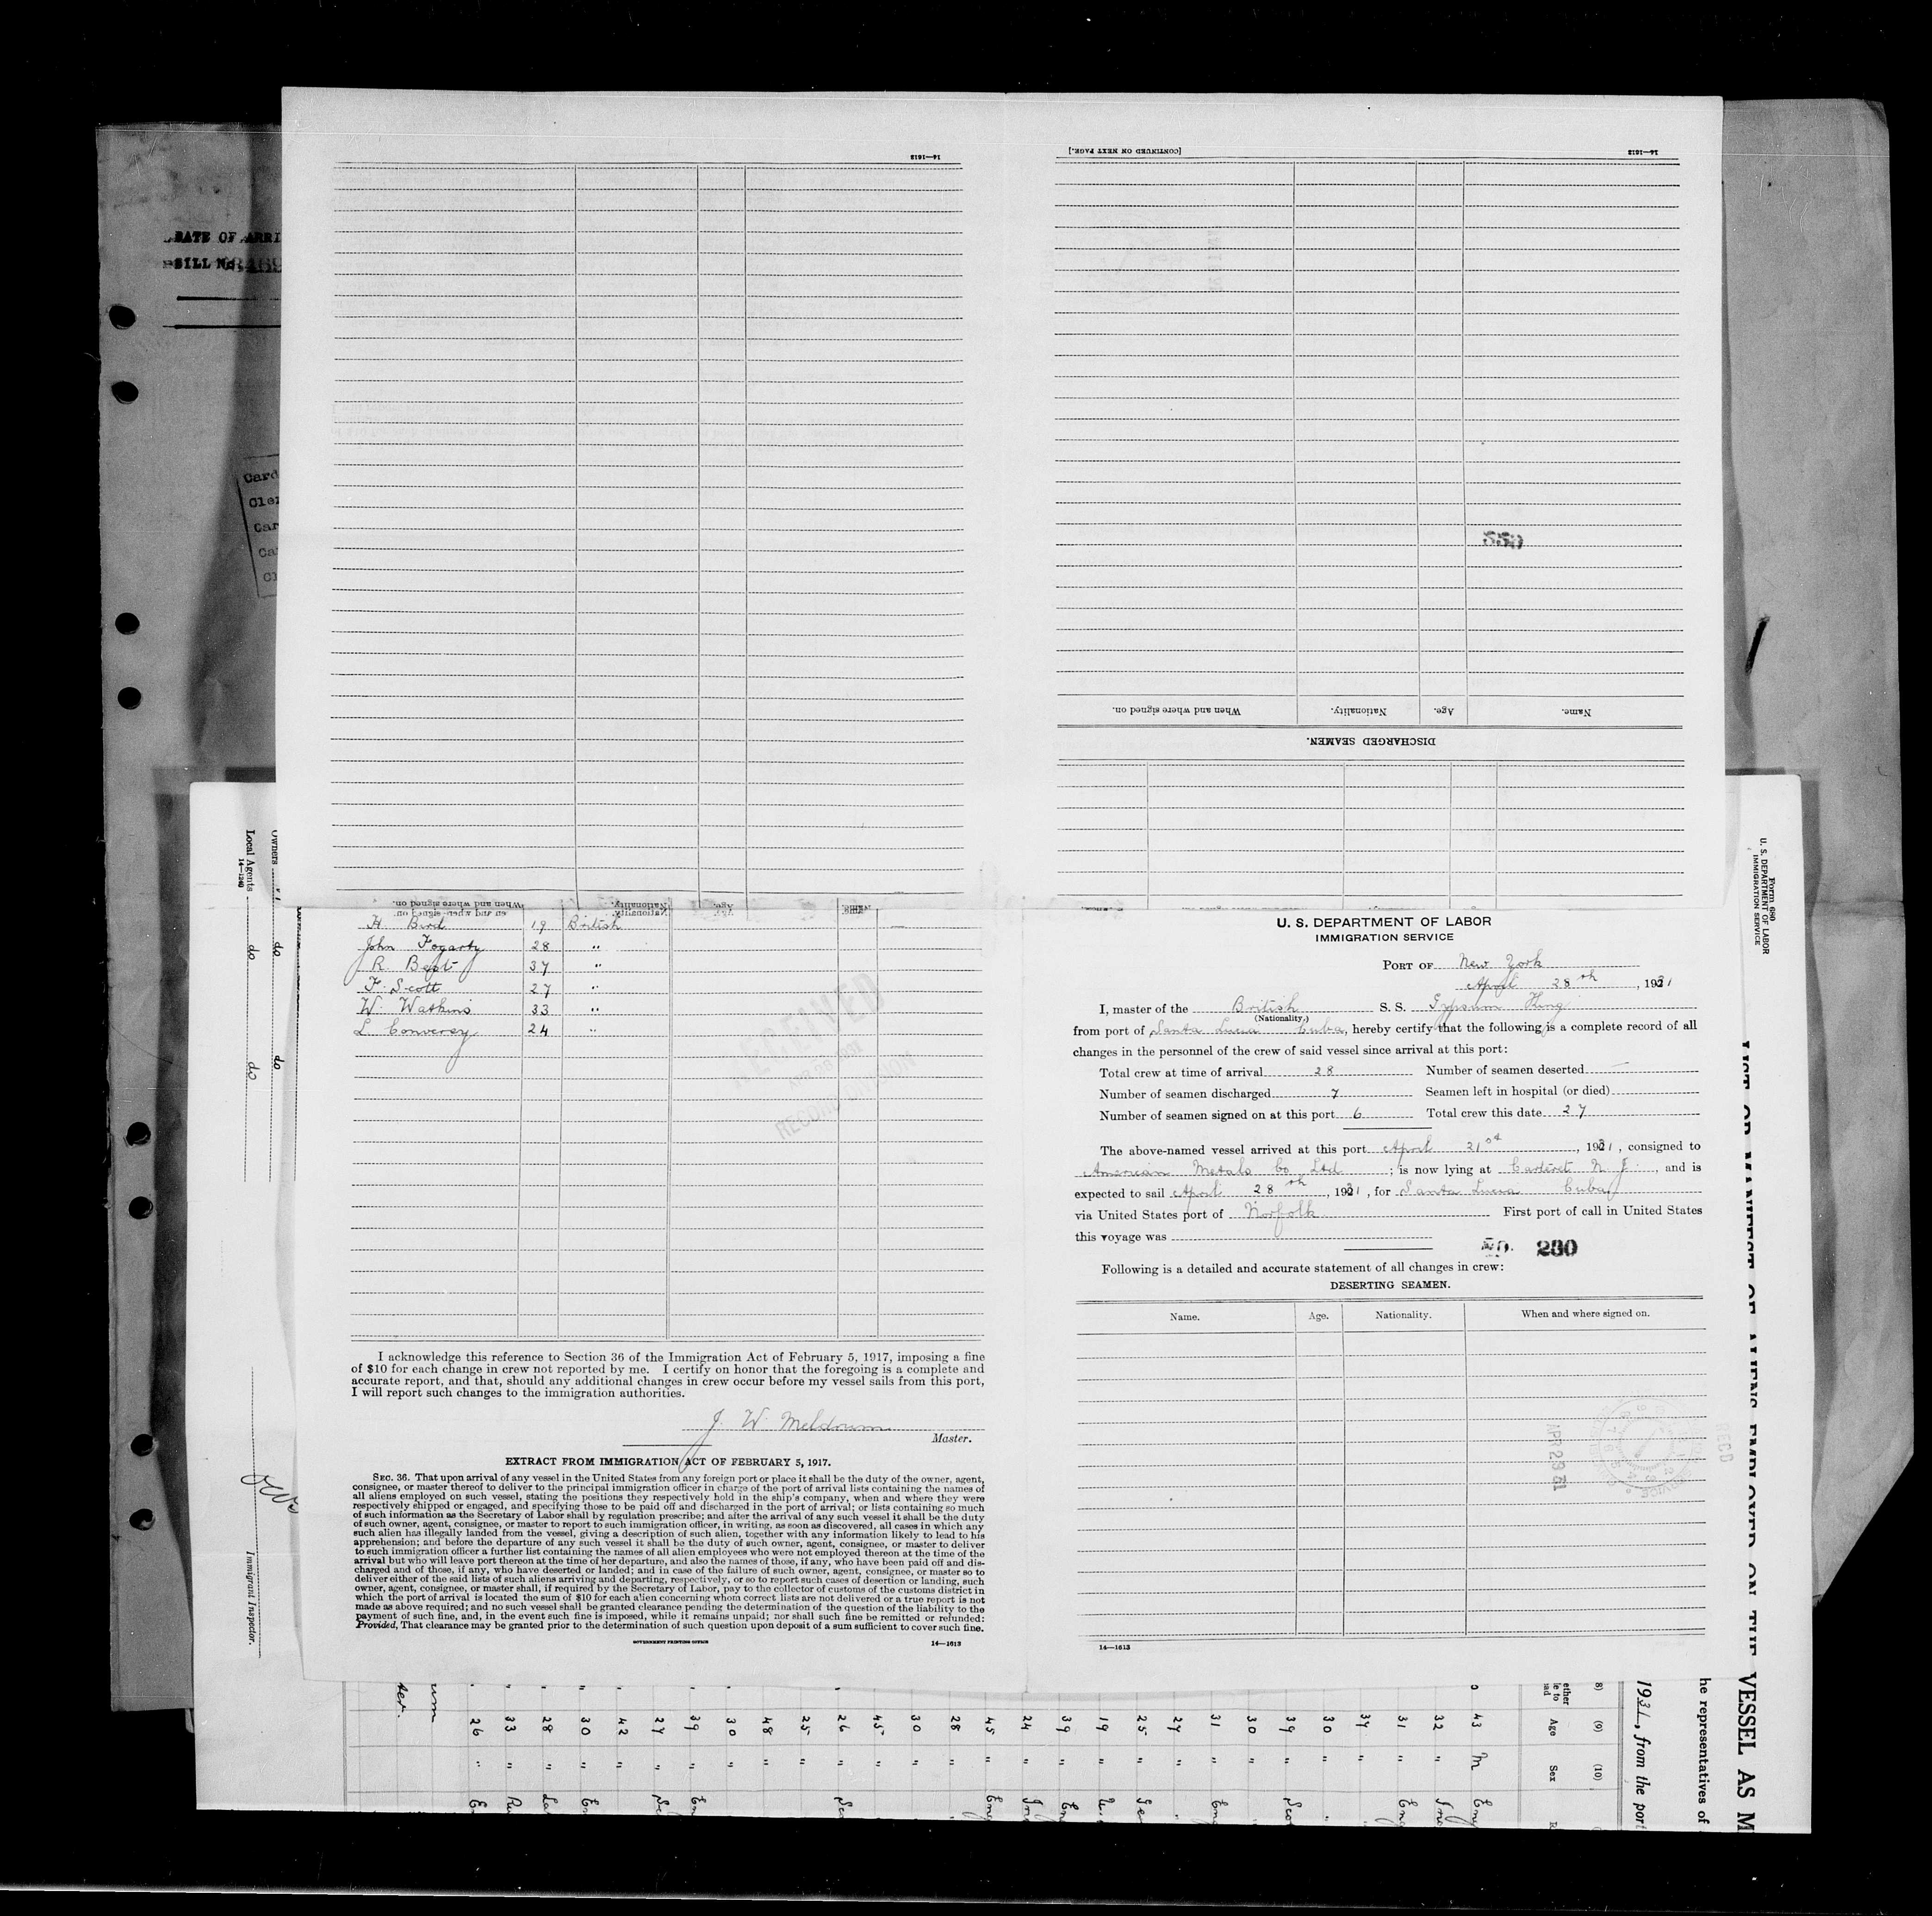 DATE OF ARRI
BILL No.
14—1613
[CONTINUED ON NEXT PAGE.]
14—1613
550
When and where signed on.
Nationality.
Age.
Name.
DISCHARGED SEAMEN.
When and where signed on.
Nationality.
Age.
H. Bird 19 British
John Fogarty 28 "
R. Best 37 "
F. Scott 27 "
W. Watkins 33 "
L. Conversy 24 "
RECEIVED
RECORD DIVISION
I acknowledge this reference to Section 36 of the Immigration Act of February 5, 1917, imposing a fine
of $10 for each change in crew not reported by me. I certify on honor that the foregoing is a complete and
accurate report, and that, should any additional changes in crew occur before my vessel sails from this port,
I will report such changes to the immigration authorities.
J. W. Meldrum
Master.
EXTRACT FROM IMMIGRATION ACT OF FEBRUARY 5, 1917.
SEC. 36. That upon arrival of any vessel in the United States from any foreign port or place it shall be the duty of the owner, agent,
consignee, or master thereof to deliver to the principal immigration officer in charge of the port of arrival lists containing the names of
all aliens employed on such vessel, stating the positions they respectively hold in the ship's company, when and where they were
respectively shipped or engaged, and specifying those to be paid off and discharged in the port of arrival; or lists containing so much
of such information as the Secretary of Labor shall by regulation prescribe; and after the arrival of any such vessel it shall be the duty
of such owner, agent, consignee, or master to report to such immigration officer, in writing, as soon as discovered, all cases in which any
such alien has illegally landed from the vessel, giving a description of such alien, together with any information likely to lead to his
apprehension; and before the departure of any such vessel it shall be the duty of such owner, agent, consignee, or master to deliver
to such immigration officer a further list containing the names of all alien employees who were not employed thereon at the time of the
arrival but who will leave port thereon at the time of her departure, and also the names of those, if any, who have been paid off and dis-
charged and of those, if any, who have deserted or landed; and in case of the failure of such owner, agent, consignee, or master so to
deliver either of the said lists of such aliens arriving and departing, respectively, or so to report such cases of desertion or landing, such
owner, agent, consignee, or master shall, if required by the Secretary of Labor, pay to the collector of customs of the customs district in
which the port of arrival is located the sum of $10 for each alien concerning whom correct lists are not delivered or a true report is not
made as above required; and no such vessel shall be granted clearance pending the determination of the question of the liability to the
payment of such fine, and, in the event such fine is imposed, while it remains unpaid; nor shall such fine be remitted or refunded:
Provided, That clearance may be granted prior to the determination of such question upon deposit of a sum sufficient to cover such fine.
GOVERNMENT PRINTING OFFICE
14—1613
U. S. DEPARTMENT OF LABOR
IMMIGRATION SERVICE
PORT OF New York
April 28th, 1931
I, master of the British S. S. Gypsum King
(Nationality.)
from port of Santa Lucia Cuba, hereby certify that the following is a complete record of all
changes in the personnel of the crew of said vessel since arrival at this port:
Total crew at time of arrival 28 Number of seamen deserted —
Number of seamen discharged 7 Seamen left in hospital (or died)
Number of seamen signed on at this port 6 Total crew this date 27
The above-named vessel arrived at this port April 21st, 1931, consigned to
American Metals Co Ltd; is now lying at Carteret N. J., and is
expected to sail April 28th, 1931, for Santa Lucia Cuba
via United States port of Norfolk First port of call in United States
this voyage was
NO. 230
Following is a detailed and accurate statement of all changes in crew:
DESERTING SEAMEN.
Name. Age. Nationality. When and where signed on.
APR 29 31
RECD
14—1613
Owners
Local Agents
14—1240
do do
do do
Immigrant Inspector.
Form 680
U. S. DEPARTMENT OF LABOR
IMMIGRATION SERVICE
LIST OR MANIFEST OF ALIENS EMPLOYED ON THE VESSEL AS M
he representatives of
1931, from the port
(8) (9) (10)
Age Sex
43 M Eng
32 "
31 " Eng
37
30 "
39 " Sco
30 "
31 " Eng
27 "
25 "
19 "
39 "
24 "
45 " Eng
28 "
30 "
45 "
26 " Sco
25 "
48 "
30 "
39 "
27 "
42 "
30 "
28 "
33 "
26 "